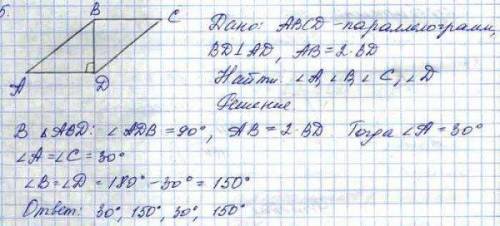 5.
B C
A D
Дано: ABCD - параллелограмм,
BD⊥AD, AB=2·BD
Найти: ∠A, ∠B, ∠C, ∠D
Решение.
В △ABD: ∠ADB = 90°, AB = 2·BD Тогда ∠A = 30°
∠A = ∠C = 30°
∠B = ∠D = 180° - 30° = 150°
Ответ: 30°, 150°, 30°, 150°